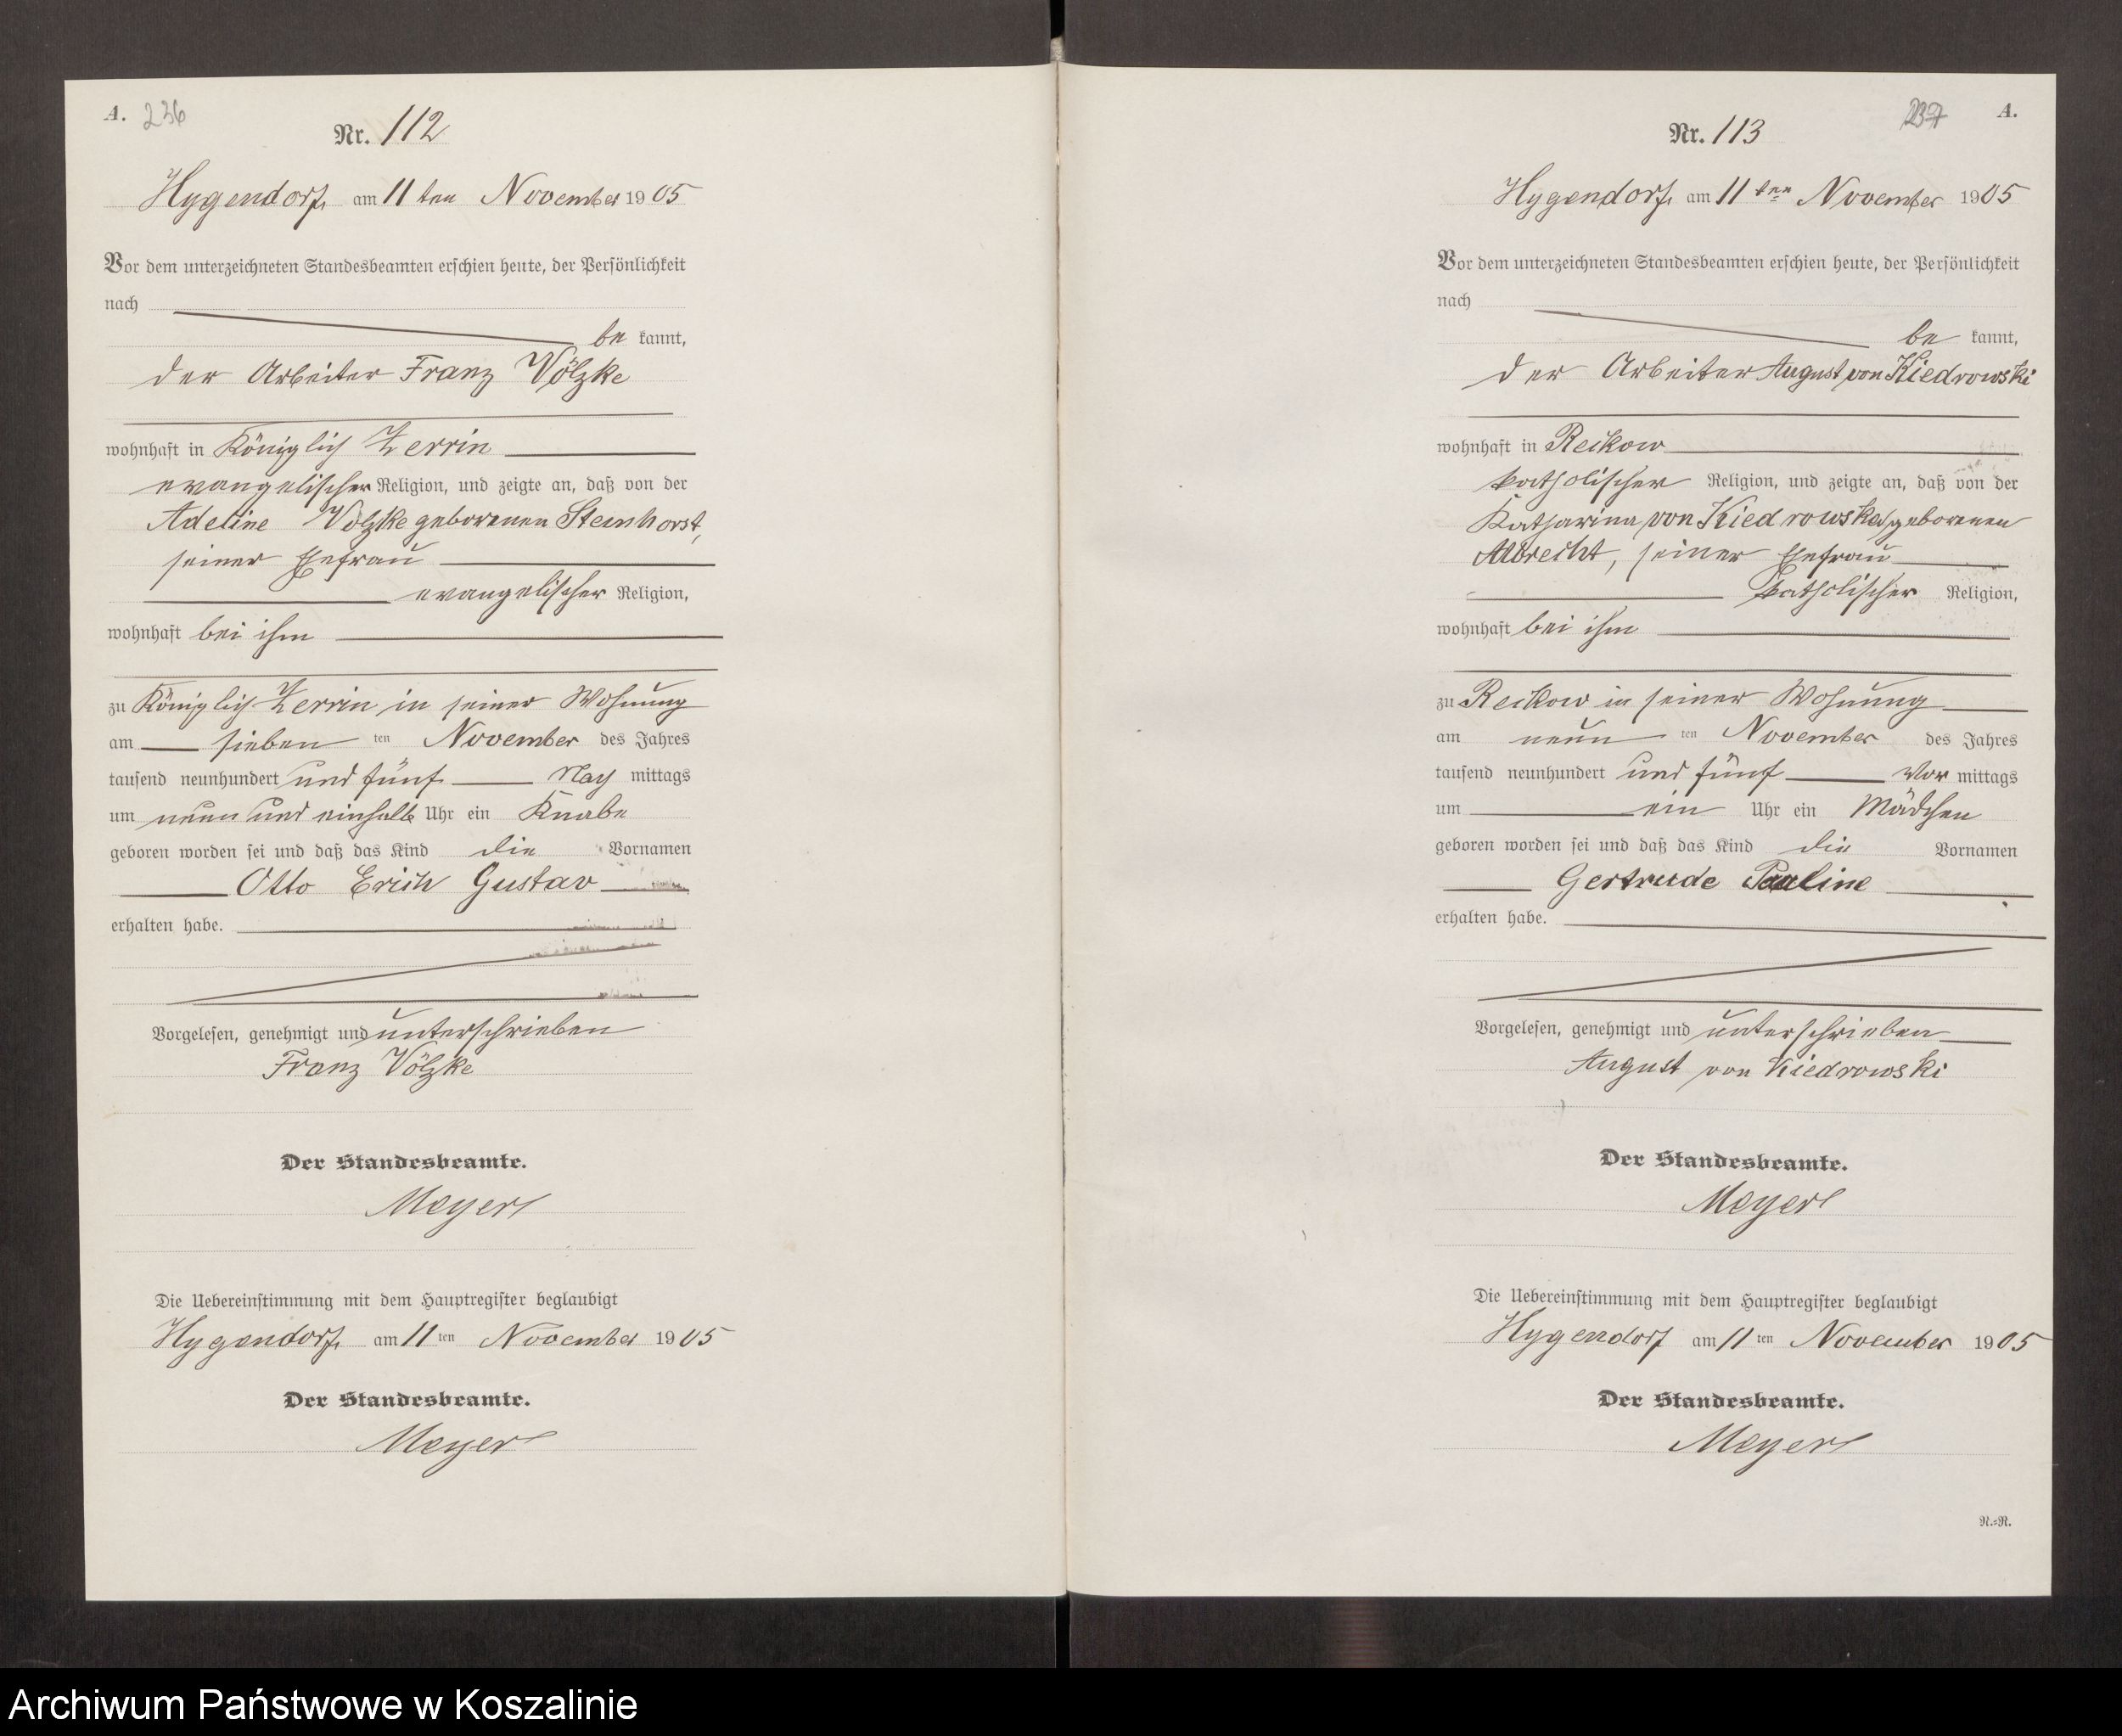 A. 236
Nr. 112
Hygendorf, am 11 ten November 1905
Vor dem unterzeichneten Standesbeamten erschien heute, der Persönlichkeit
nach
be kannt,
der Arbeiter Franz Völzke
wohnhaft in Königlich Zerrin
evangelischer Religion, und zeigte an, daß von der
Adeline Völzke geborenen Steinhorst,
seiner Ehefrau
evangelischer Religion,
wohnhaft bei ihm
zu Königlich Zerrin in seiner Wohnung
am sieben ten November des Jahres
tausend neunhundert und fünf Nach mittags
um neun und einhalb Uhr ein Knabe
geboren worden sei und daß das Kind die Vornamen
Otto Erich Gustav
erhalten habe.
Vorgelesen, genehmigt und unterschrieben
Franz Völzke
Der Standesbeamte.
Meyer
Die Uebereinstimmung mit dem Hauptregister beglaubigt
Hygendorf, am 11 ten November 1905
Der Standesbeamte.
Meyer
237 A.
Nr. 113
Hygendorf, am 11 ten November 1905
Vor dem unterzeichneten Standesbeamten erschien heute, der Persönlichkeit
nach
be kannt,
der Arbeiter August von Kiedrowski
wohnhaft in Reckow
katholischer Religion, und zeigte an, daß von der
Katharina von Kiedrowska geborenen
Albrecht, seiner Ehefrau
katholischer Religion,
wohnhaft bei ihm
zu Reckow in seiner Wohnung
am neun ten November des Jahres
tausend neunhundert und fünf Vor mittags
um ein Uhr ein Mädchen
geboren worden sei und daß das Kind die Vornamen
Gertrude Pauline
erhalten habe.
Vorgelesen, genehmigt und unterschrieben
August von Kiedrowski
Der Standesbeamte.
Meyer
Die Uebereinstimmung mit dem Hauptregister beglaubigt
Hygendorf am 11 ten November 1905
Der Standesbeamte.
Meyer
R.=R.
Archiwum Państwowe w Koszalinie